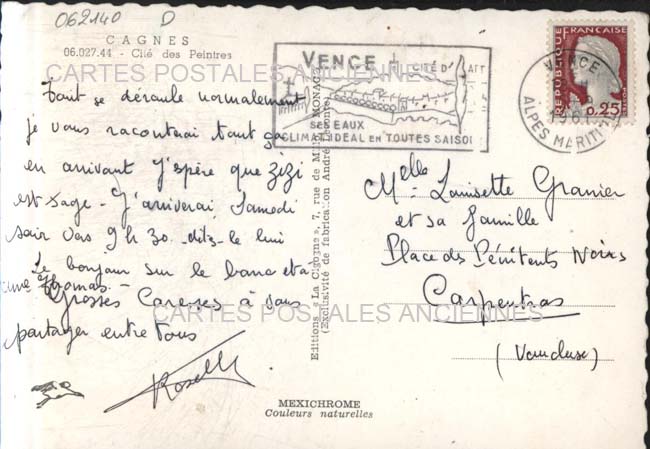 062140 D
CAGNES
06.027.44 - Cité des Peintres
CARTES POSTALES ANCIENNES
Tout se déroule normalement
je vous raconterai tout ça
en arrivant J'espère que Zizi
est sage - J'arriverai Samedi
soir vers 9 h 30. dites-le lui
Le bonjour sur le banc et à
Thomas -
Grosses Caresses à
partager entre tous
Roselli
VENCE
CITÉ D'ART
SES EAUX
CLIMAT IDEAL EN TOUTES SAISO
REPUBLIQUE FRANÇAISE
0,25
VENCE
ALPES MARITIMES
Editions "La Cigogne", 7, rue de Millo, MONACO
(Exclusivité de fabrication André Leconte)
Melle Louisette Granier
et sa famille
Place des Pénitents Noirs
Carpentras
(Vaucluse)
CARTES POSTALES ANCIENNES
MEXICHROME
Couleurs naturelles